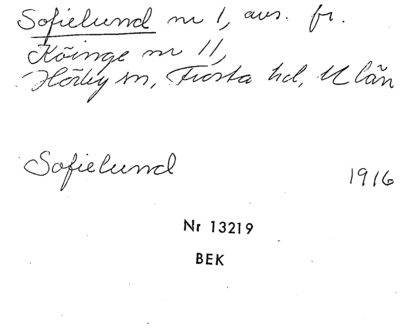 Sofielund nr 1, avs. fr.
Köinge nr 11,
Hörby sn, Frosta hd, M län
Sofielund 1916
Nr 13219
BEK